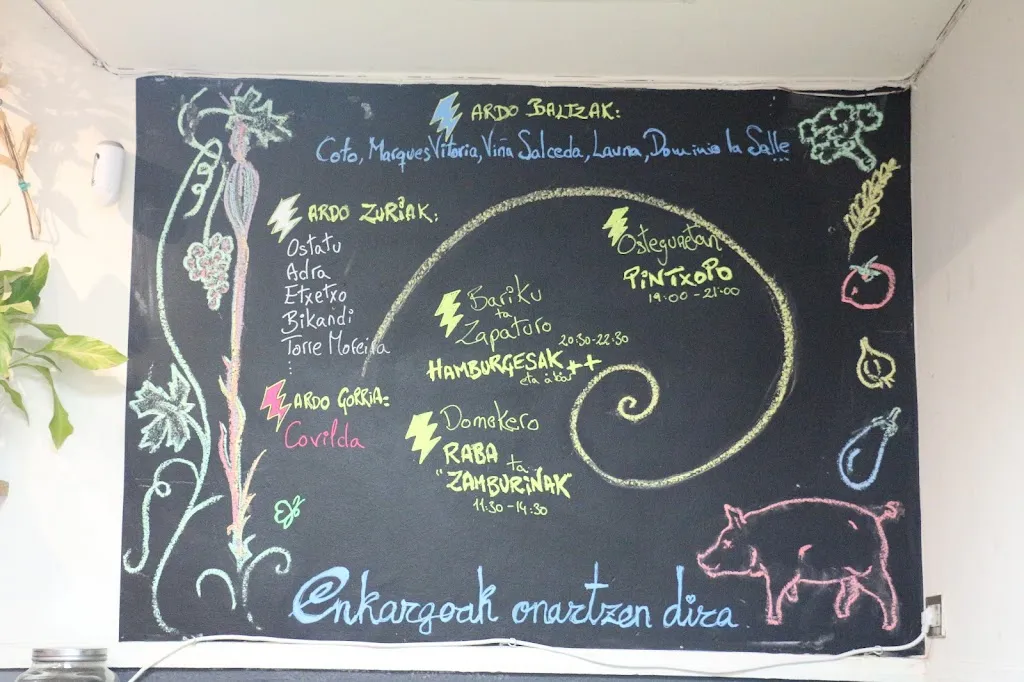 ARDO BALTZAK:
Coto, Marques Vitoria, Viña Salceda, Launa, Dominio la Salle...
ARDO ZURIAK:
Ostatu
Adra
Etxetxo
Bikandi
Torre Moreira
:
ARDO GORRIA:
Covilda
Ostegunetan
PINTXOPO
19:00-21:00
Bariku
ta
Zapaturo
20:30-22:30
HAMBURGESAK ++
eta
Domekero
RABA
ta
"ZAMBURIÑAK
11:30-14:30
Enkargoak onartzen dira